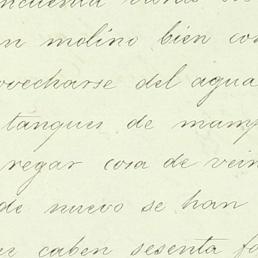 ncuenta
n molino bien con
ovecharse del agua
tanques de mamp
regar cosa de vein
de nuevo se han
caben sesenta fa